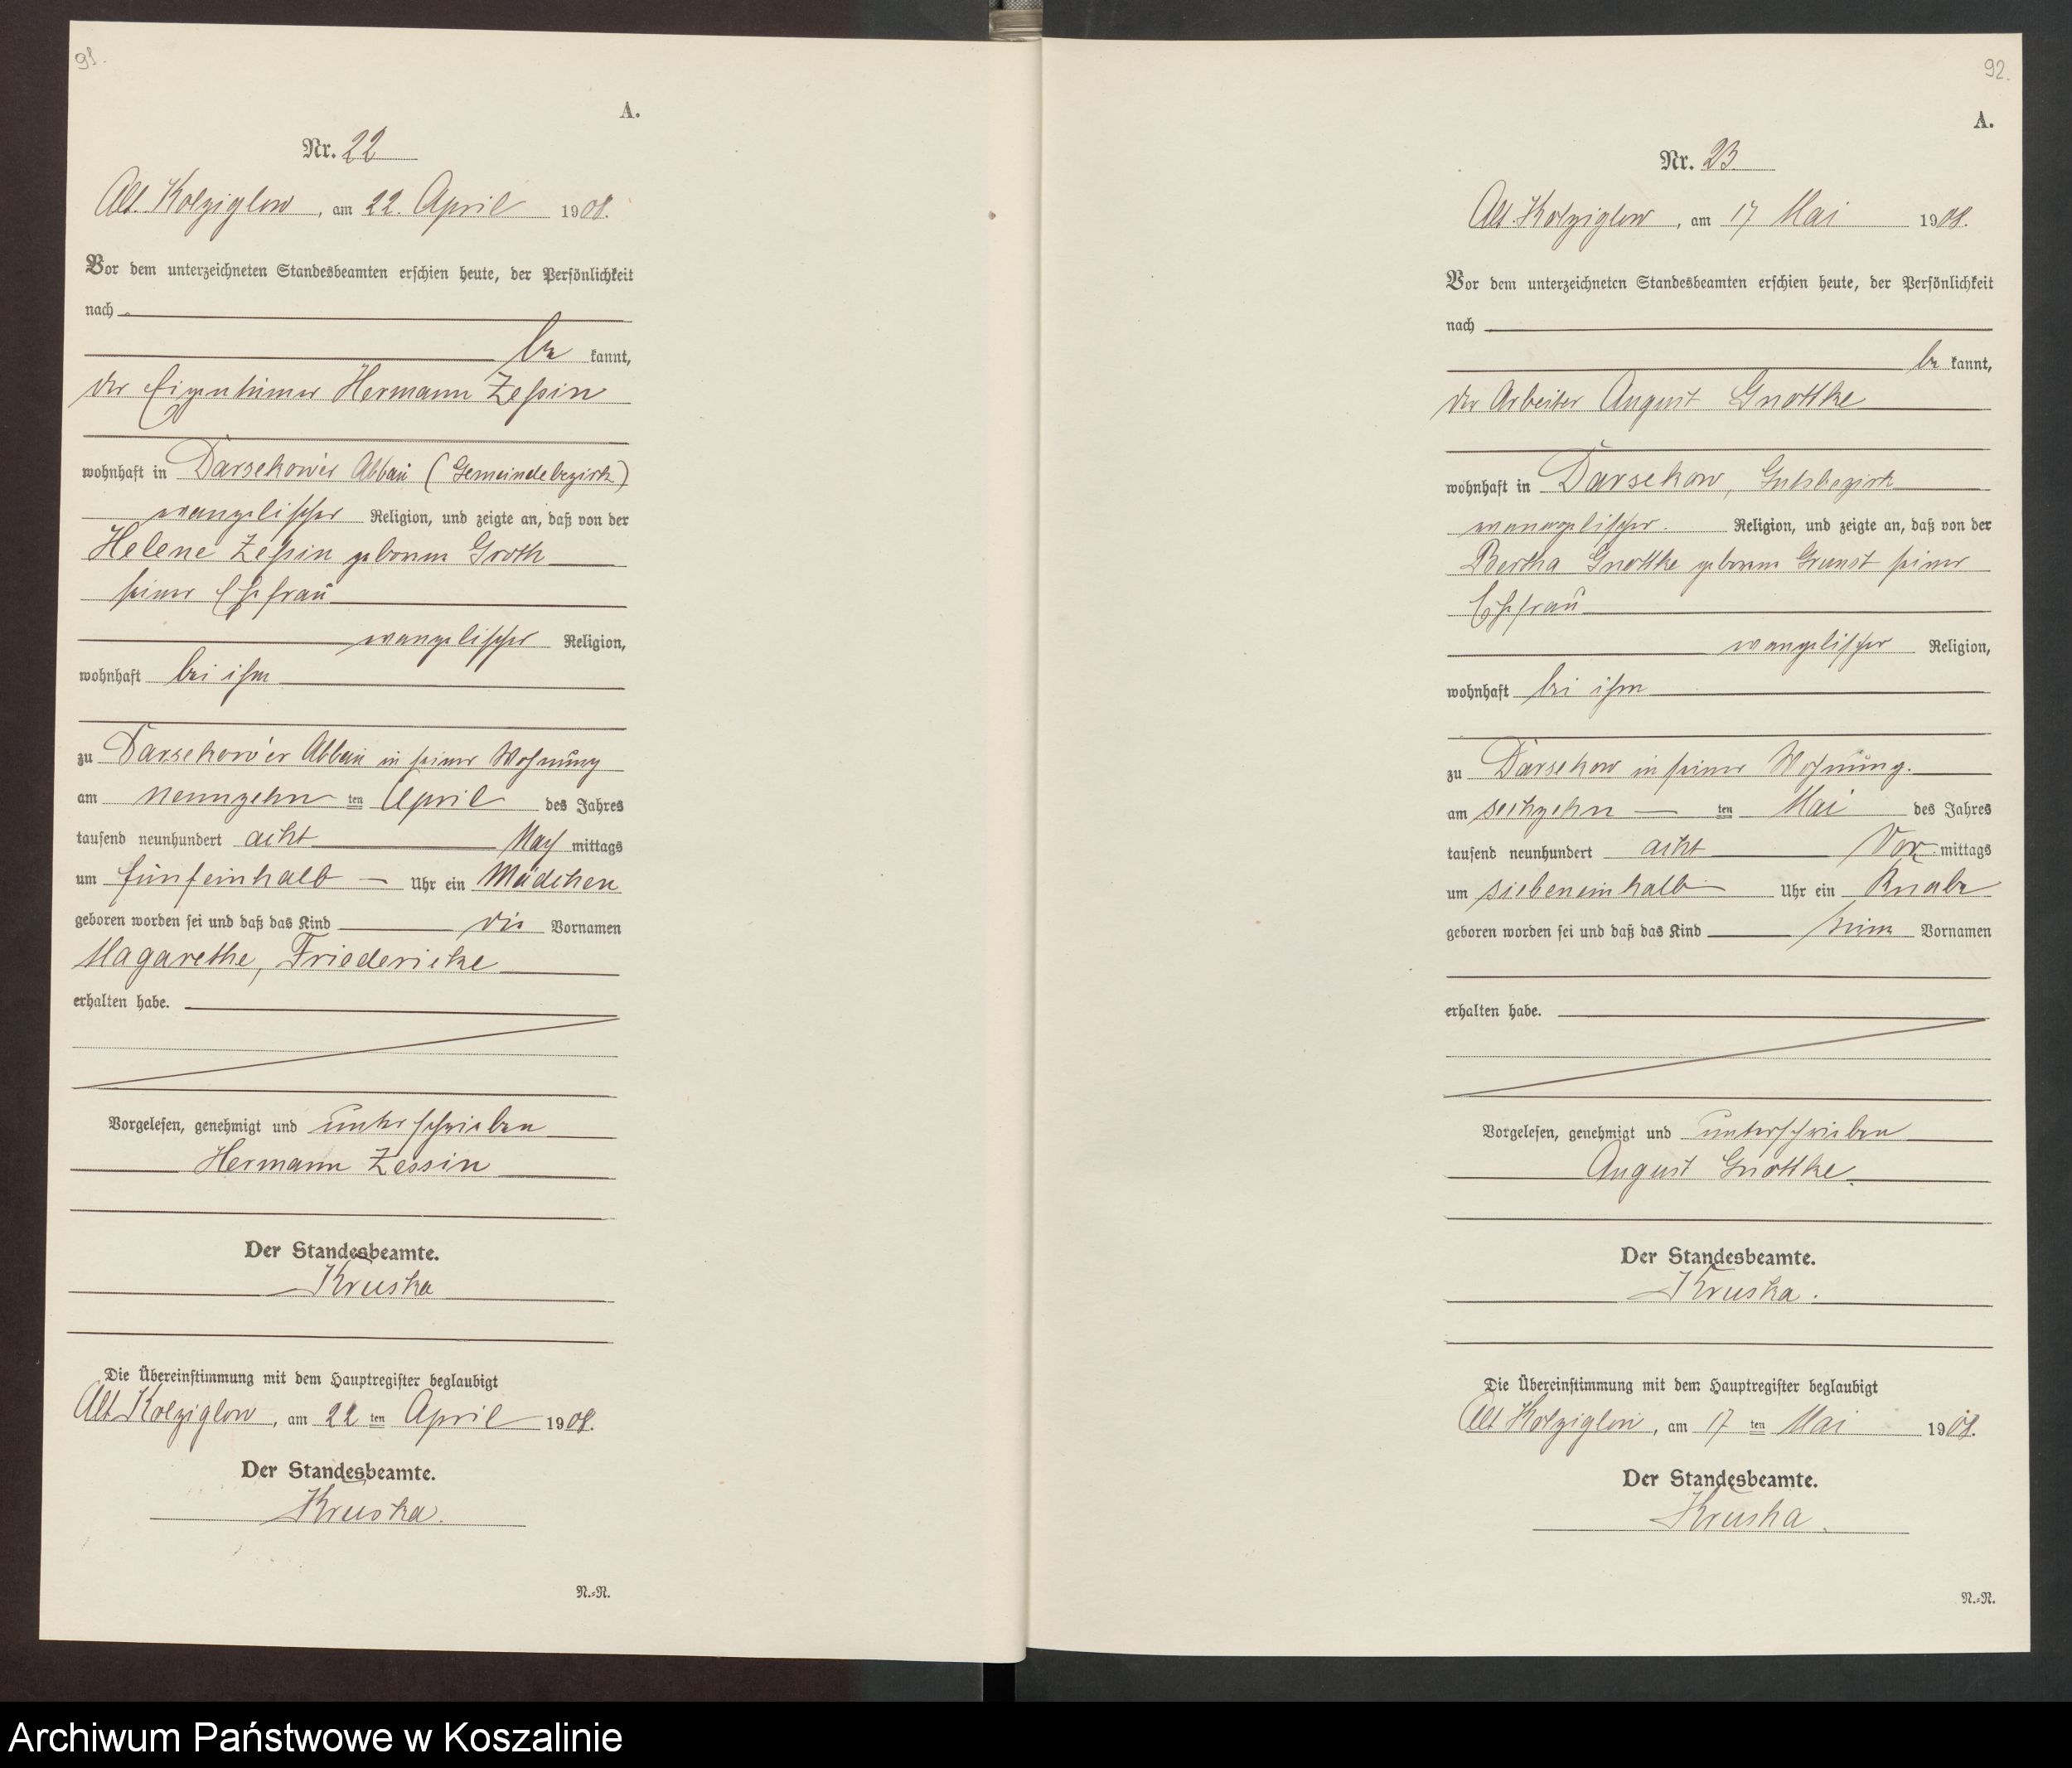 91.
A.
Nr. 22
Alt. Kolziglow, am 22. April 1908.
Vor dem unterzeichneten Standesbeamten erschien heute, der Persönlichkeit
nach
be kannt,
der Eigenthümer Hermann Zessin
wohnhaft in Darsekow'er Abbau (Gemeindebezirk)
evangelischer Religion, und zeigte an, daß von der
Helene Zessin geborenen Groth
seiner Ehefrau
evangelischer Religion,
wohnhaft bei ihm
zu Darsekow'er Abbau in seiner Wohnung
am neunzehn ten April des Jahres
tausend neunhundert acht Nach mittags
um fünfeinhalb Uhr ein Mädchen
geboren worden sei und daß das Kind die Vornamen
Magarethe, Friedericke
erhalten habe.
Vorgelesen, genehmigt und unterschrieben
Hermann Zessin
Der Standesbeamte.
Kruska
Die Übereinstimmung mit dem Hauptregister beglaubigt
Alt Kolziglow, am 22 ten April 1908.
Der Standesbeamte.
Kruska.
N.=N.
92.
A.
Nr. 23.
Alt. Kolziglow, am 17 Mai 1908.
Vor dem unterzeichneten Standesbeamten erschien heute, der Persönlichkeit
nach
be kannt,
der Arbeiter August Gnottke
wohnhaft in Darsekow, Gutsbezirk
evangelischer. Religion, und zeigte an, daß von der
Bertha Gnottke geborenen Granst seiner
Ehefrau
evangelischer Religion,
wohnhaft bei ihm
zu Darsekow in seiner Wohnung.
am sechzehn ten Mai des Jahres
tausend neunhundert acht Vor mittags
um siebeneinhalb Uhr ein Knabe
geboren worden sei und daß das Kind keine Vornamen
erhalten habe.
Vorgelesen, genehmigt und unterschrieben
August Gnottke.
Der Standesbeamte.
Kruska.
Die Übereinstimmung mit dem Hauptregister beglaubigt
Alt Kolziglow, am 17 ten Mai 1908.
Der Standesbeamte.
Kruska.
N.=N.
Archiwum Państwowe w Koszalinie